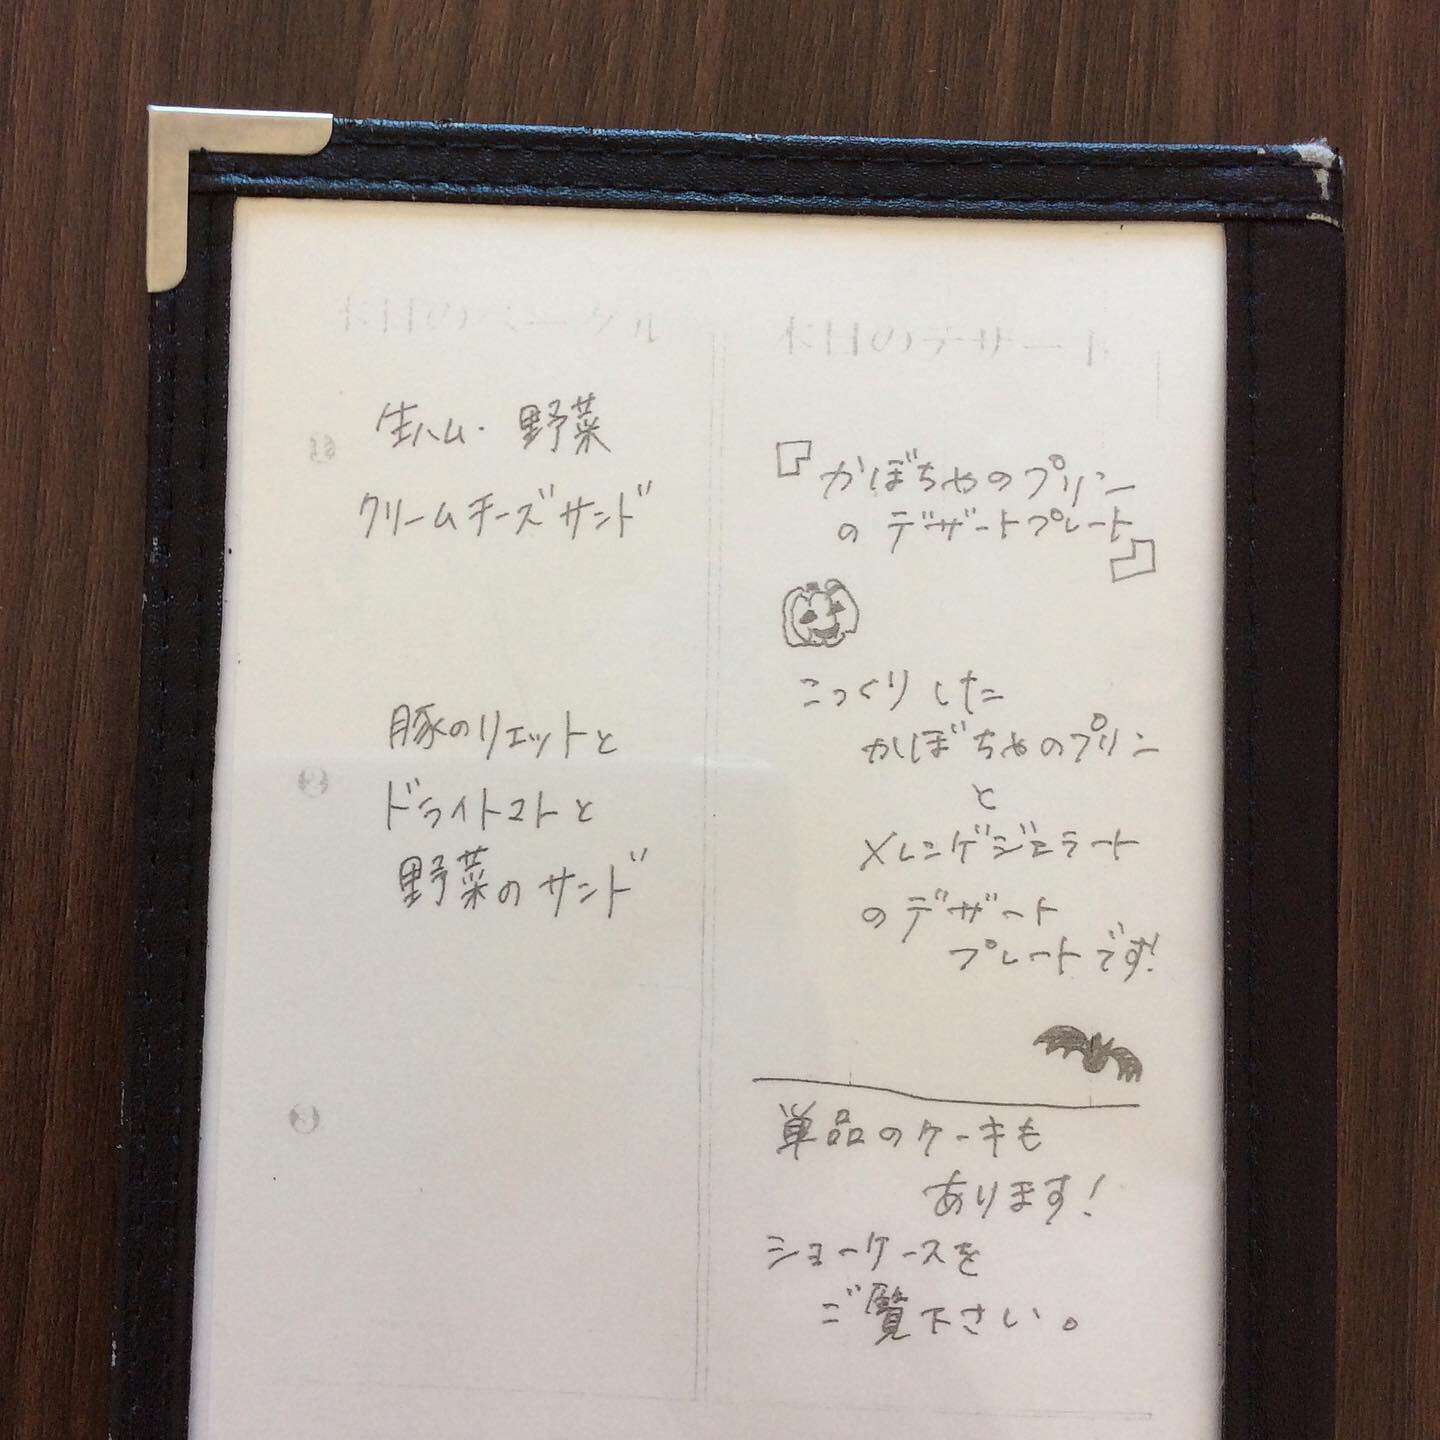 本日のベーグル
生ハム・野菜
クリームチーズサンド
豚のリエットと
ドライトマトと
野菜のサンド
本日のデザート
『かぼちゃのプリン
のデザートプレート』
こっくりした
かぼちゃのプリン
と
メレンゲジェラート
のデザート
プレートです!
単品のケーキも
あります!
ショーケースを
ご覧下さい。